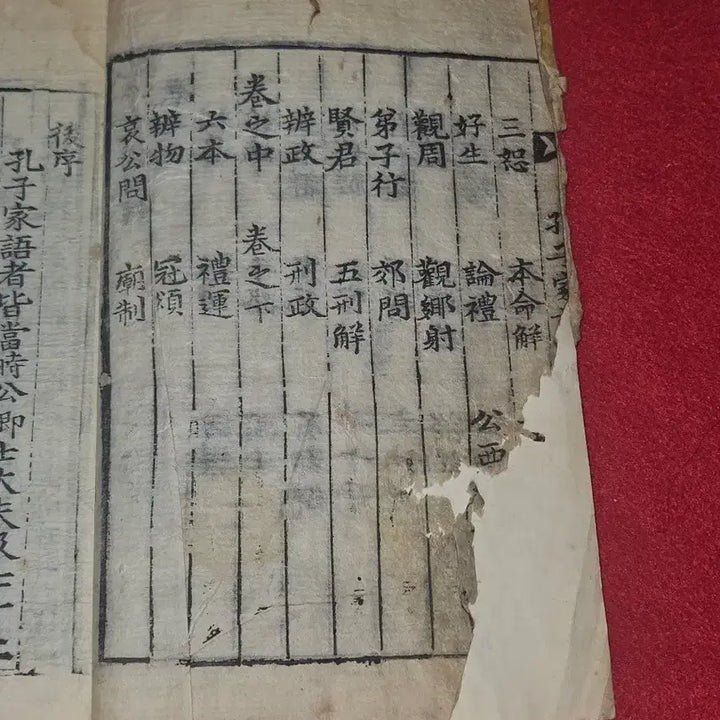 孔子家
三恕 本命解
好生 論禮 公西
觀周 觀鄉射
弟子行 郊問
賢君 五刑解
辨政 刑政
卷之中 卷之下
六本 禮運
辨物 冠頌
哀公問 廟制
後序
孔子家語者皆當時公卿士大夫及